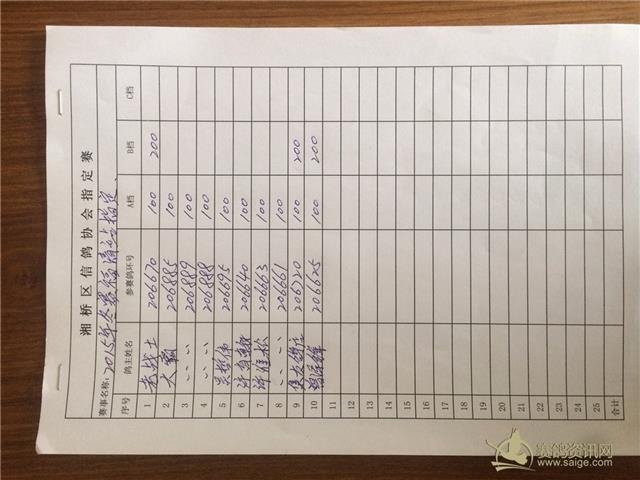 湘桥区信鸽协会指定赛
赛事名称：2015年冬赛福清站指定
序号 鸽主姓名 参赛鸽环号 A档 B档 C档
1 老战士 206670 100 200
2 大霸 206885 100
3 〃 206889 100
4 〃 206888 100
5 206695 100
6 206640 100
7 许佳松 206663 100
8 〃 206661 100
9 206720 100 200
10 206625 100 200
11
12
13
14
15
16
17
18
19
20
21
22
23
24
25
合计
赛鸽资讯网
www.saige.com